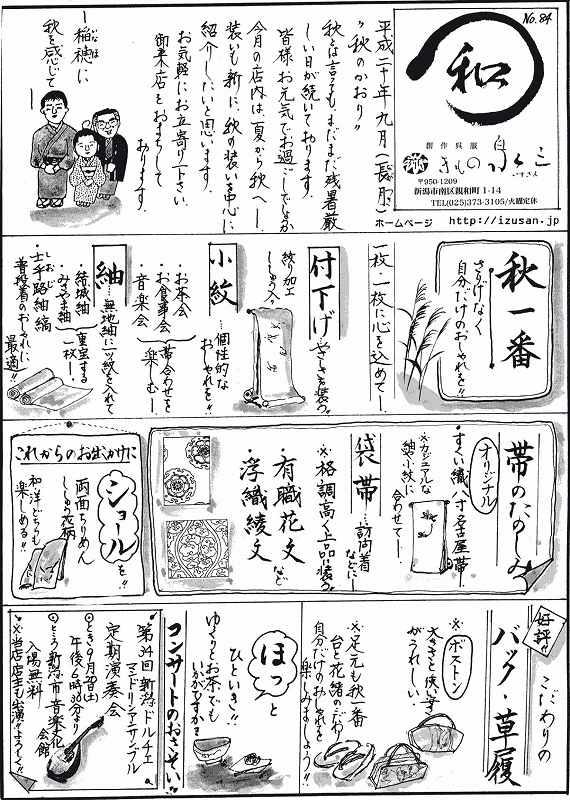 No.84
和
創作呉服
きもの 泉三
いずさん
〒950-1209
新潟市南区親和町1-14
TEL(025)373-3105/火曜定休
ホームページ http://izusan.jp
平成二十年九月(長月)
"秋のかおり"
秋とは言っても、まだまだ残暑厳
しい日が続いております。
皆様お元気でお過ごしでしょうか
今月の店内は―夏から秋へ―
装いも新に、秋の装いを中心に
紹介したいと思います。
お気軽にお立寄り下さい。
御来店をおまちして
おります。
―稲穂に
秋を感じて―
秋一番
さりげなく
自分だけのおしゃれを!!
一枚・一枚に心を込めて―
付下げ
…やさしさを装う
絞り加工
ししゅう入り
小紋
…個性的な
おしゃれを!!
・お茶会
・お食事会
・音楽会
帯合わせを
楽しむ―
紬
…無地紬に一ツ紋を入れて
・結城紬
・みさやま紬
重宝する
一枚―
・士乎路紬縞
普段着のおしゃれに
最適!!
帯のたのしみ
オリジナル
・すくい織八寸名古屋帯
※カジュアルな
紬や小紋に
合わせて―
袋帯
…訪問着
などに―
※格調高く上品に装う
・有職花文
・浮織綾文
など
これからのお出かけに
ショールを!!
両面ちりめん
ししゅう花柄
和洋どちらも
楽しめる!!
好評!!
こだわりの
バック・草履
※ボストン
大きさと使い易さ
がうれしい
※足元も秋一番
台と花緒のこだわり
自分だけのおしゃれを
楽しみましょう!!
ほっと
ひといき!!
ゆっくりお茶でも
いかがですか?
コンサートのおさそい!!
第34回新潟ドルチェ
マンドリンアンサンブル
定期演奏会
●とき 9月20日(土)
午後6時30分より
●ところ 新潟市音楽文化
会館
入場無料
※当店店主も出演!!